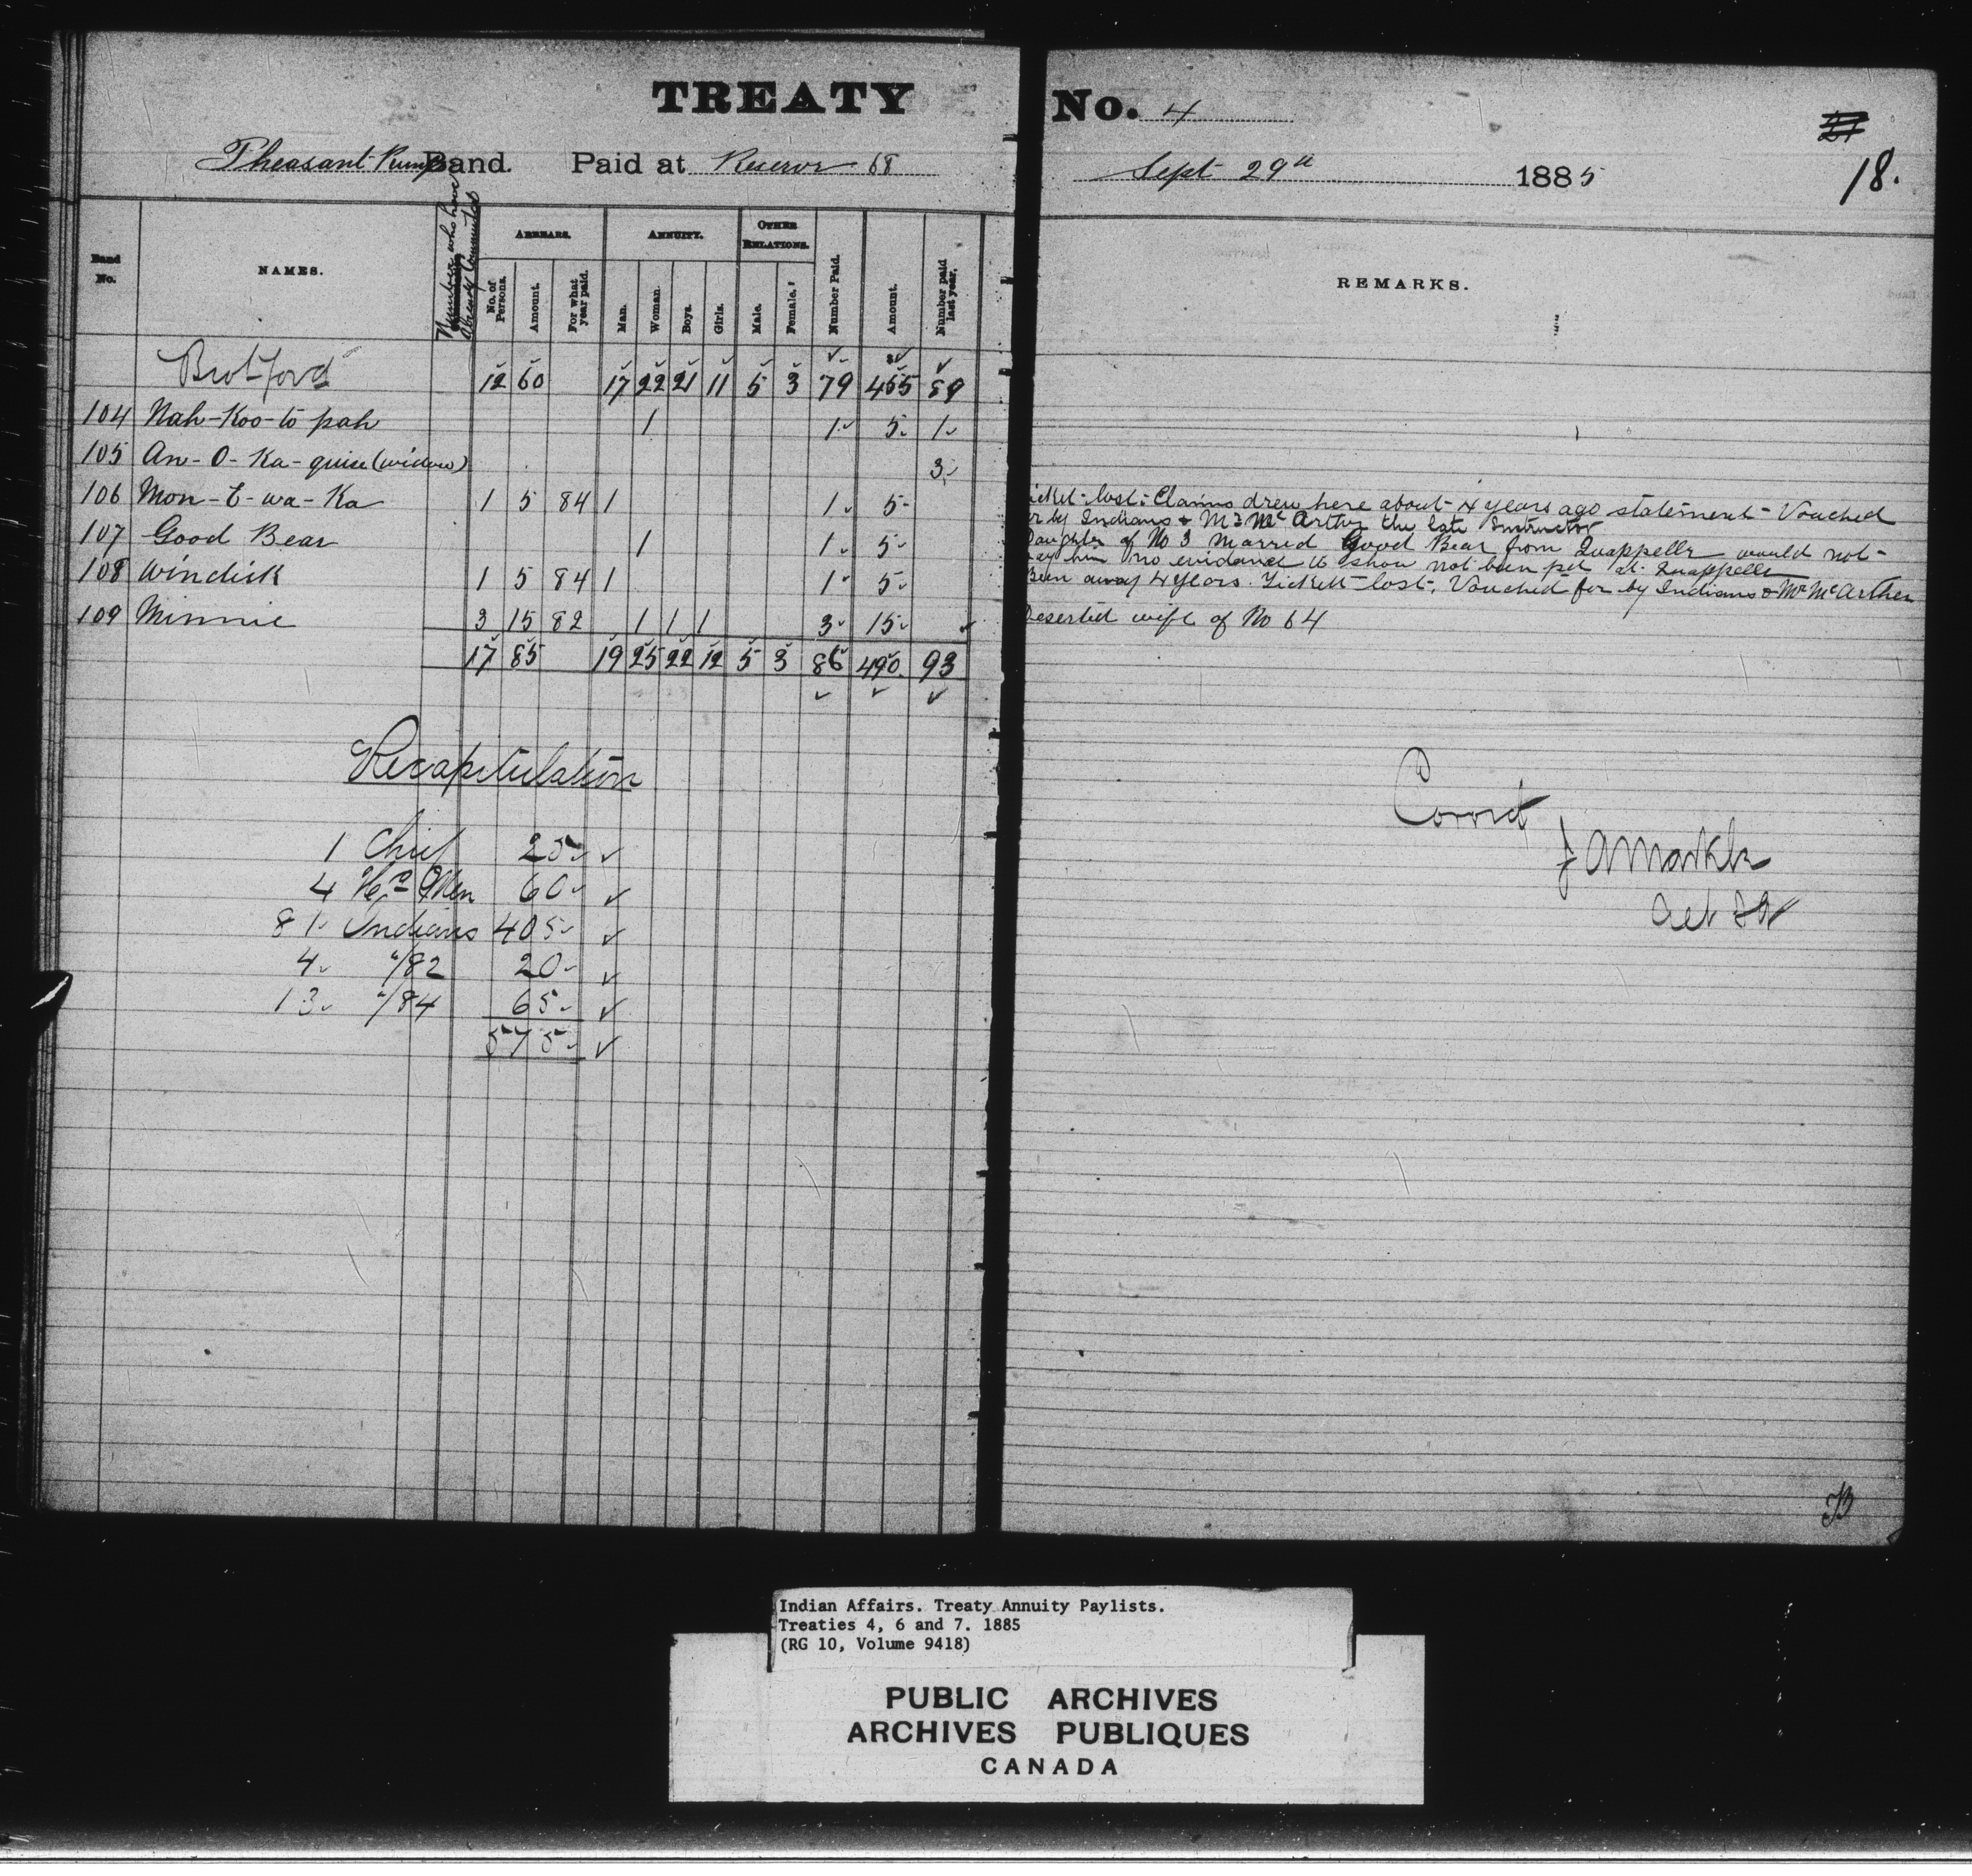 TREATY No. 4
Pheasant Rump Band. Paid at Reserve 68 Sept 29th 1885
18.
Band No.
NAMES.
Number who have already Commuted
ARREARS.
No. of Persons.
Amount.
For what year paid.
ANNUITY.
Man.
Woman.
Boys.
Girls.
OTHER RELATIONS.
Male.
Female.
Number Paid.
Amount.
Number paid last year.
REMARKS.
Brot ford 12 60 17 22 21 11 5 3 79 455 89
104 Nah-Koo-to pah 1 1 5 1
105 An-O-Ka-quise (widow) 3
106 Mon-E-wa-Ka 1 5 84 1 1 5
icket lost. Claims drew here about 4 years ago statement Vouched
or by Indians & Mr McArthur the late Instructor
107 Good Bear 1 1 5
Daughter of No 3 Married Good Bear from Quappelle would not
pay him no evidence to show not been pd at Quappelle
108 Windick 1 5 84 1 1 5
Been away 4 years. Tickett lost, Vouched for by Indians & Mr McArther
109 Minnie 3 15 82 1 1 1 3 15
Deserted wife of No 64
17 85 19 25 22 12 5 3 86 490 93
Recapitulation
1 Chief 25
4 Hd Men 60
81 Indians 405
4 "/82 20
13 "/84 65
575
Correct
J A Markle
Act
Indian Affairs. Treaty Annuity Paylists.
Treaties 4, 6 and 7. 1885
(RG 10, Volume 9418)
PUBLIC ARCHIVES
ARCHIVES PUBLIQUES
CANADA